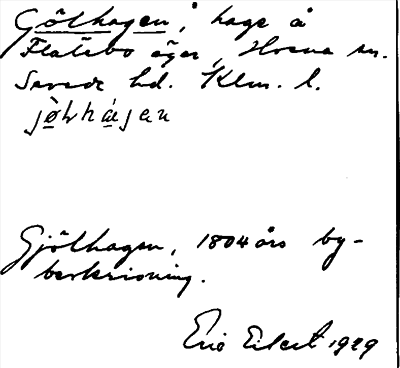 Gölhagen, hage å
Flatebo ägor, Hvena sn.
Sevede hd. Klm. l.
jø̀lhágen
Gjölhagen, 1804 års by-
beskrivning.
Eric Eilert 1929